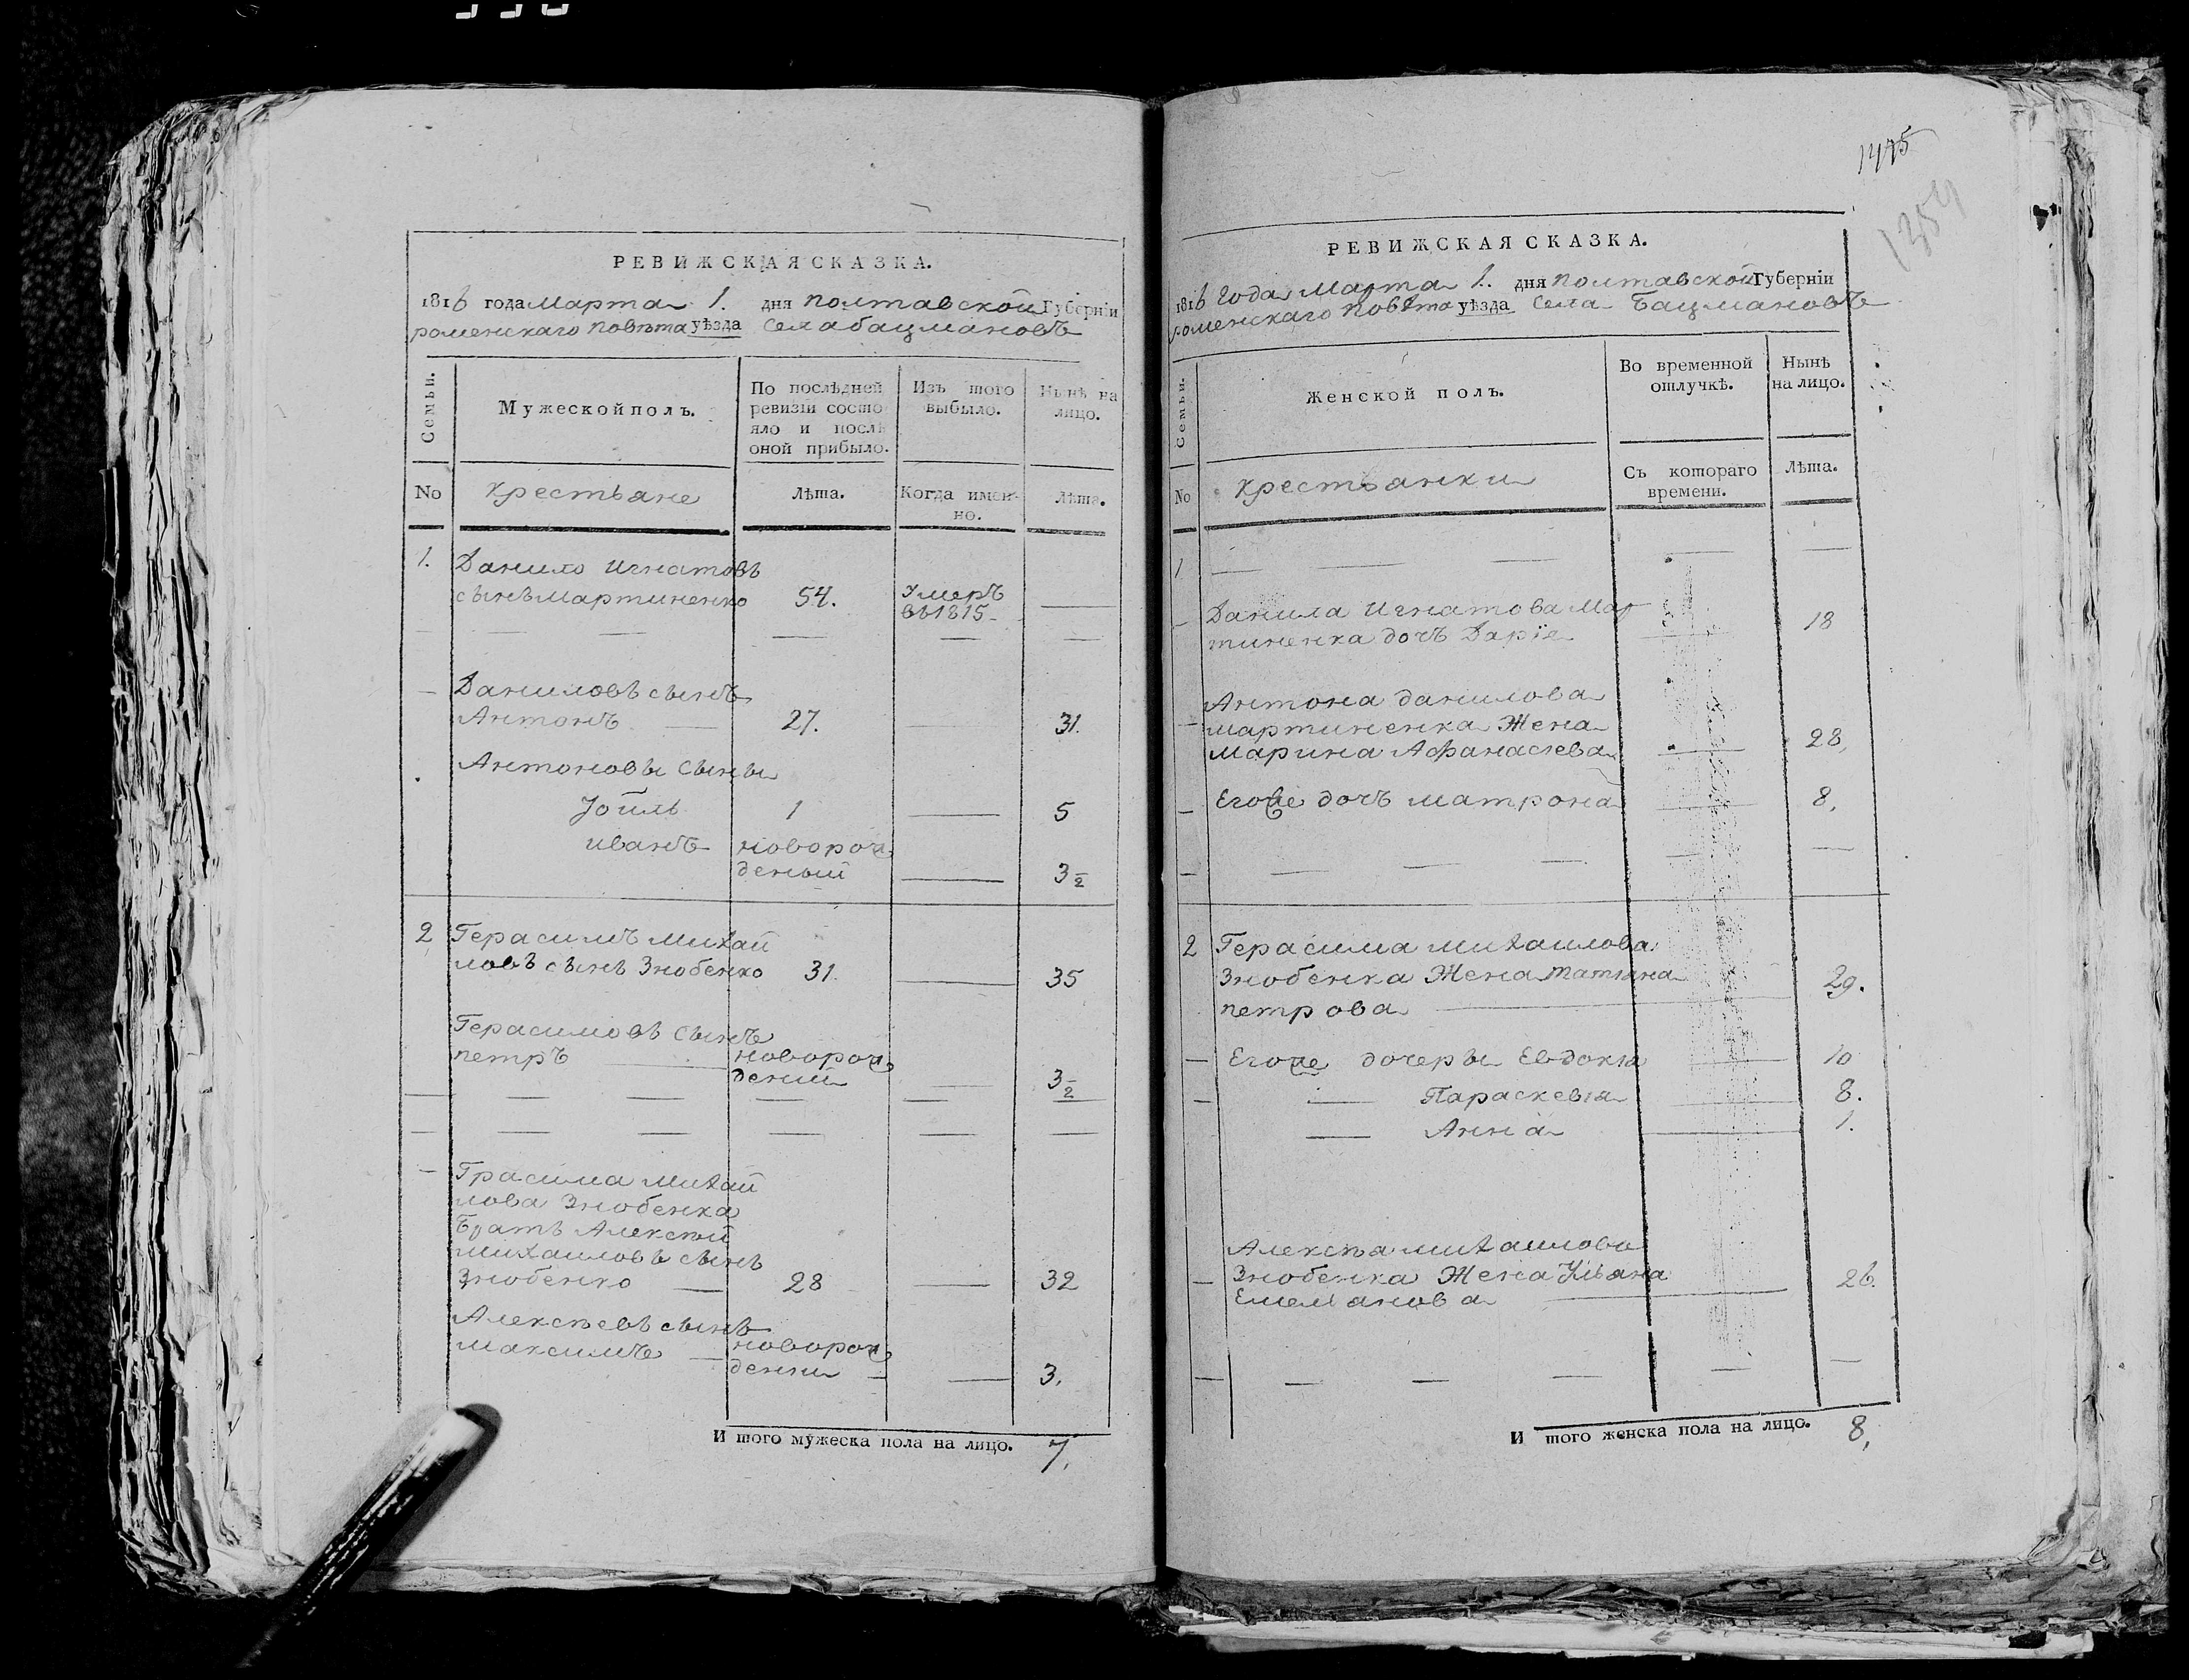 РЕВИЖСКАЯ СКАЗКА.
1816 года Марта 1. дня полтавской Губернїи
роменскаго повѣта уѣзда Села бацмановъ
Семьи.
Мужеской полъ.
По послѣдней
ревизїи состо
яло и послѣ
оной прибыло.
Изъ того
выбыло.
Нынѣ на
лицо.
No
крестьане
Лѣта.
Когда имен-
но.
Лѣта.
1. Данило Игнатовъ
сынъ Мартиненко 54. Умеръ
въ 1815
Даниловъ сынъ
Антонъ 27. 31.
Антоновы сыны
1 5
иванъ новорож
деный 3 1/2
2 Герасимъ Михай
ловъ сынъ Знобенко 31. 35
Герасимовъ сынъ
петръ новорож
дений 3 1/2
Грасима Михай
лова Знобенка
Братъ Алексѣй
Михаиловъ сынъ
Знобенко 28 32
Алексѣевъ сынъ
максимъ новорож
дени 3.
И того мужеска пола на лицо. 7.
1475
1354
РЕВИЖСКАЯ СКАЗКА.
1816 Года Марта 1. дня полтавской Губернїи
роменскаго повѣта уѣзда Села Бацмановъ
Семьи.
Женской полъ.
Во временной
отлучкѣ.
Нынѣ
на лицо.
No
крестьанки
Съ котораго
времени.
Лѣта.
1
Данила Игнатова Мар
тиненка дочъ Дарїе 18
Антона данилова
мартиненка Жена
Марина Афанасіева 28.
Егоже дочъ матрона 8.
2 Герасима михаилова
Знобенка Жена татіана
петрова 29.
Егоже дочеры Евдокіа 10
Параскевіа 8.
Анна 1.
Алексѣа михаилова
Знобенка Жена Ульана
Емельанова 26.
И того женска пола на лицо. 8.